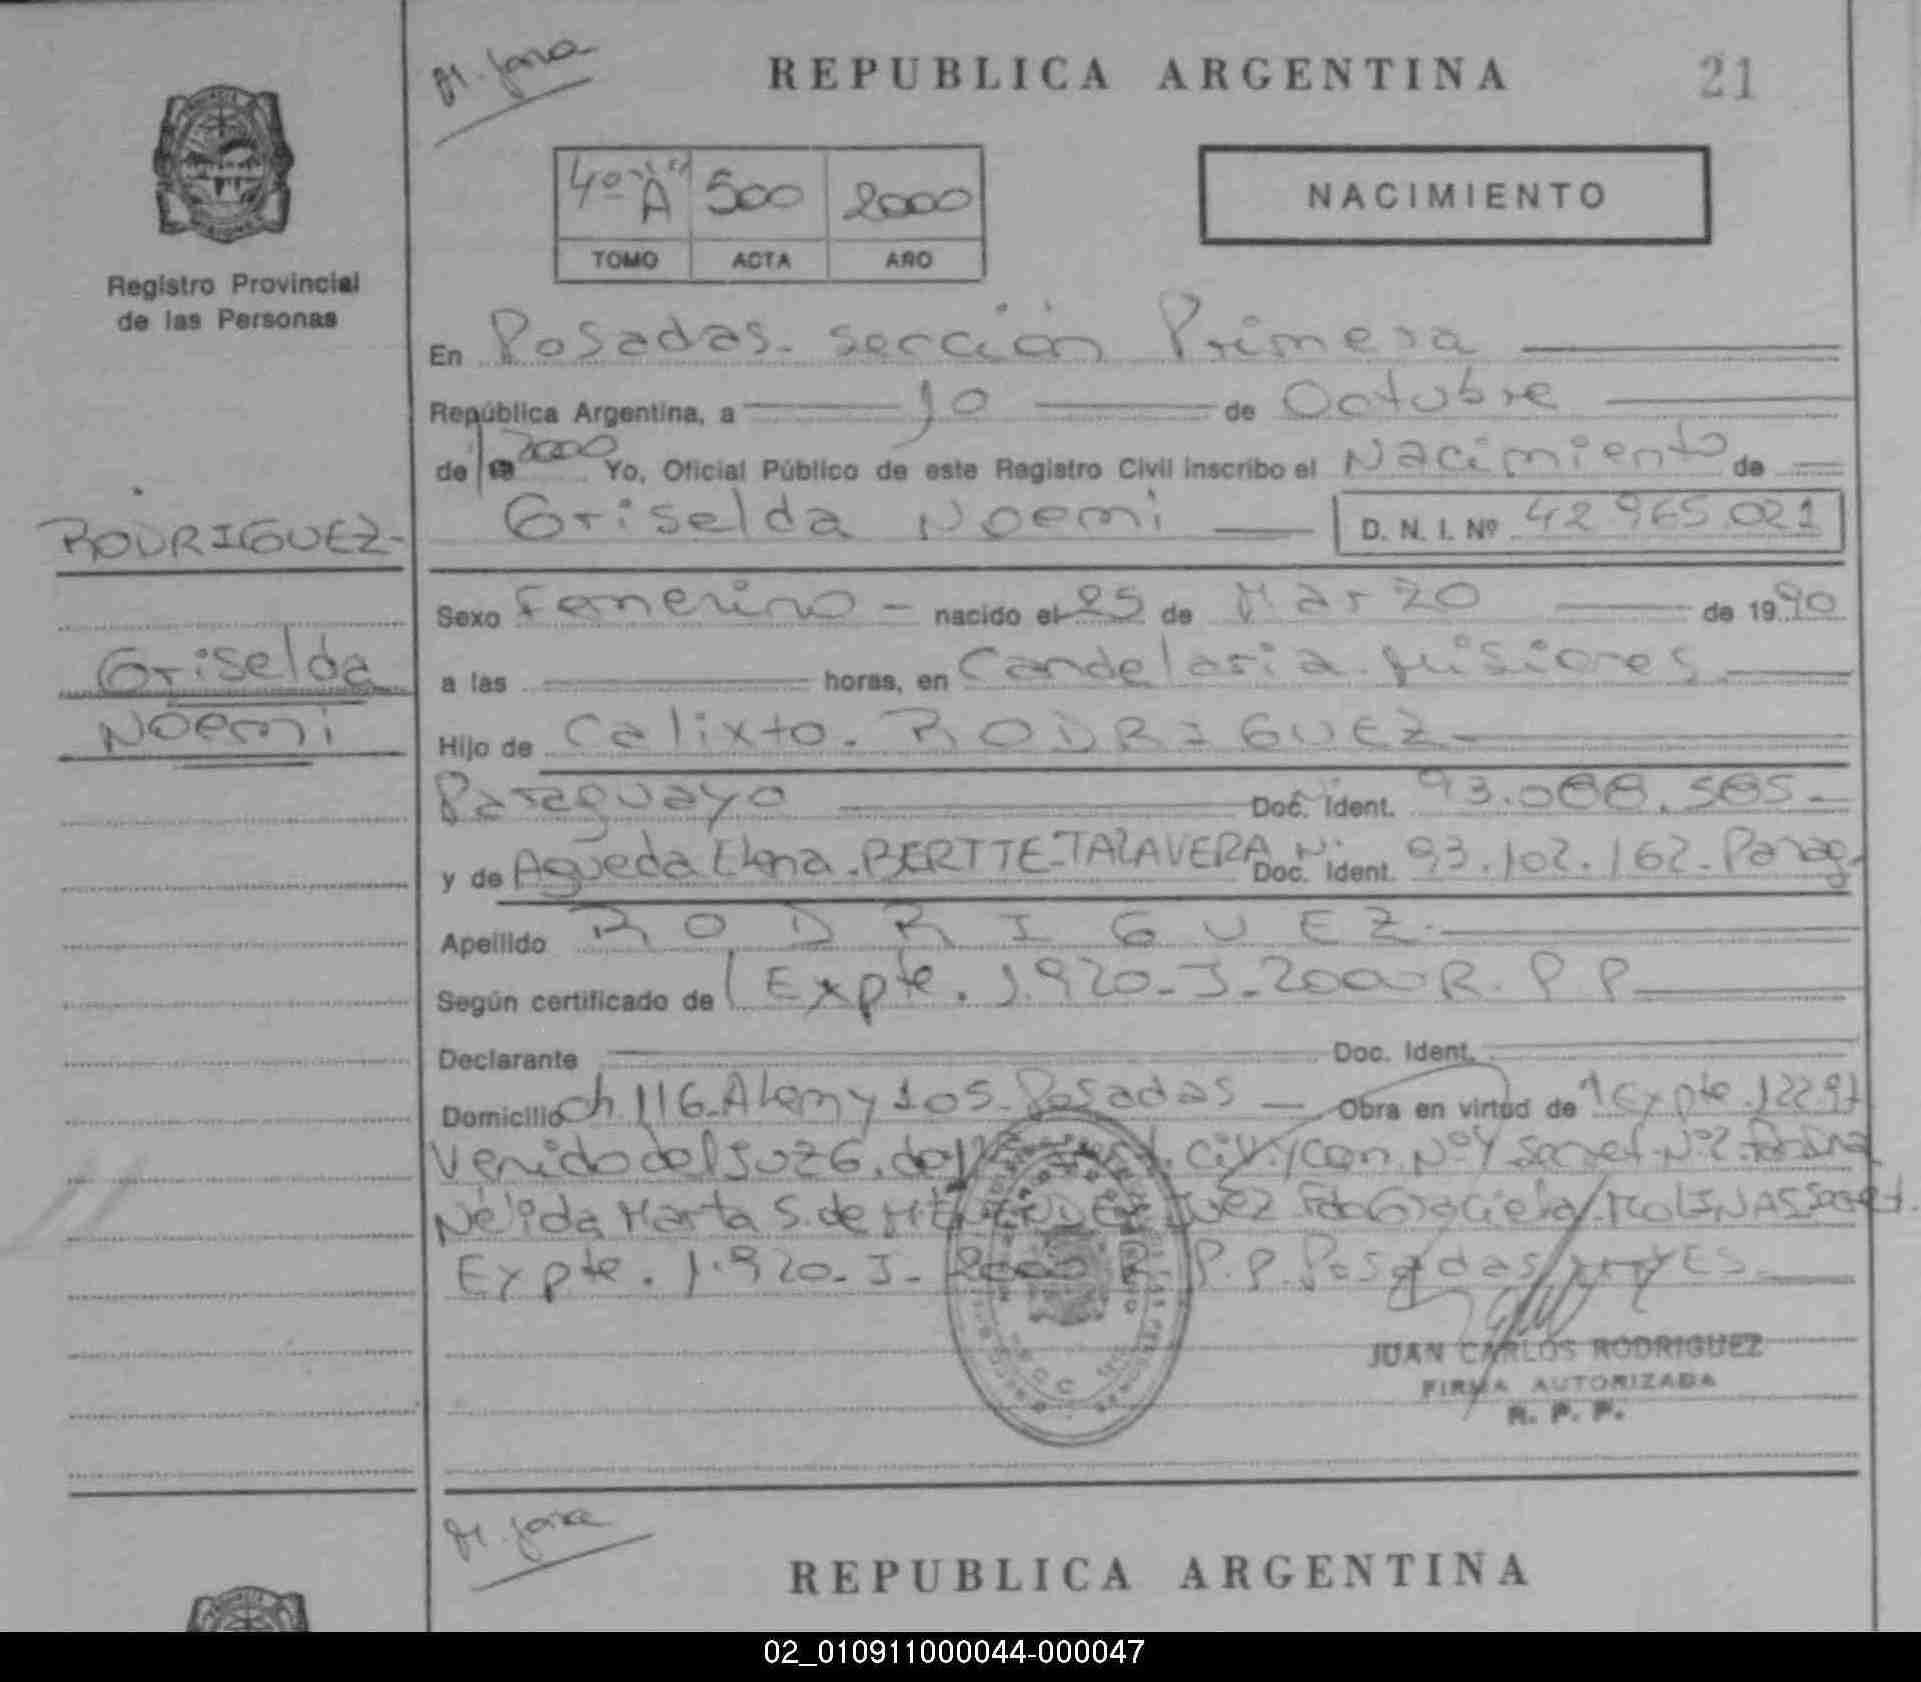 M. Jara
REPUBLICA ARGENTINA
21
4º "A" 500 2000
TOMO ACTA AÑO
NACIMIENTO
Registro Provincial
de las Personas
En Posadas. sección Primera
República Argentina, a 10 de Octubre
de 19 2000 Yo, Oficial Público de este Registro Civil inscribo el Nacimiento de
Griselda Noemi D. N. I. Nº 42965021
RODRIGUEZ-
Griselda
Noemi
Sexo Femenino - nacido el 25 de Marzo de 1990
a las horas, en Candelaria. Misiones
Hijo de Calixto. RODRIGUEZ
Paraguayo Doc. Ident. 93.088.585.-
y de Agueda Elena. BERTTE-TALAVERA Doc. Ident. Ni 93.102.162. Parag.
Apellido RODRIGUEZ.
Según certificado de Expte. 1.920-J-2000 R. P. P
Declarante Doc. Ident.
Domicilio Ch. 116. Alem y 105. Posadas - Obra en virtud de Expte. 1229
Venido del Juzg. de Civ. y Com. Nº 4 Secret. Nº 2
Nélida Marta S. de JUEZ Fdo Graciela MOLINAS Secret.
Expte. 1.920-J-2000 R. P. P. Posadas
JUAN CARLOS RODRIGUEZ
FIRMA AUTORIZADA
R. P. P.
M. Jara
REPUBLICA ARGENTINA
02_010911000044-000047